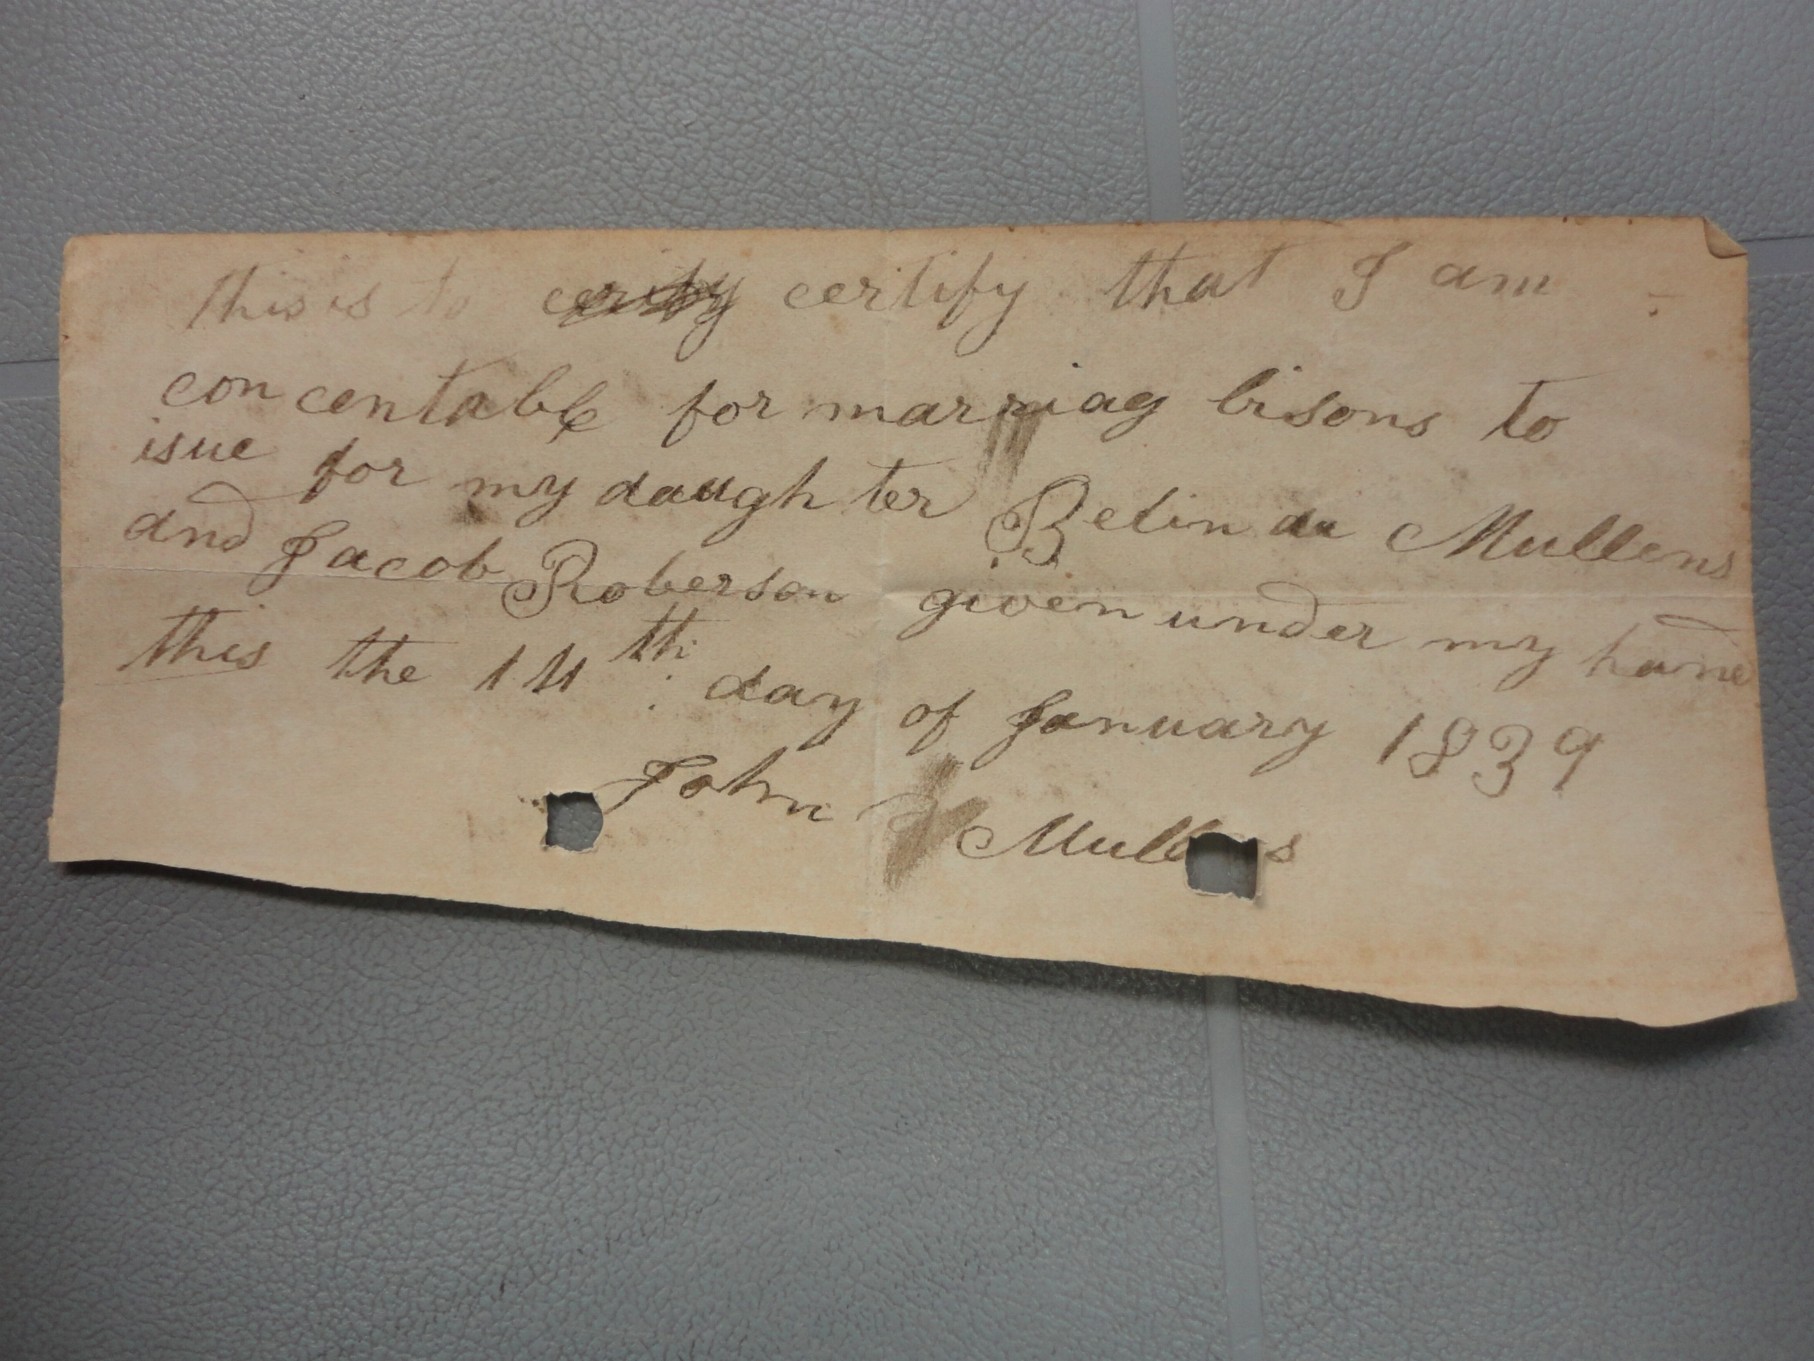 this is to certify that I am
concentable for marriag lisons to
isue for my daughter Belinda Mullens
and Jacob Roberson given under my hand
this the 14th day of January 1839
John Mullens